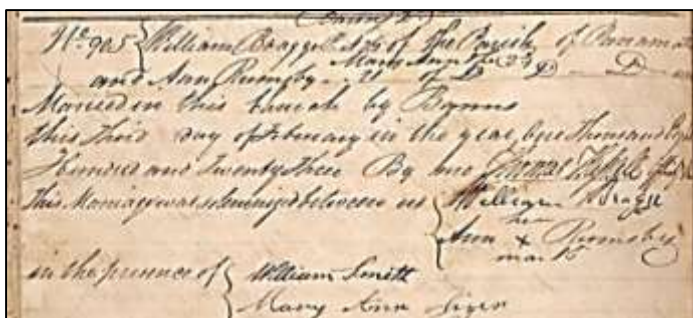 (Banns)
No. 905 { William Bragge of the Parish of Param
Mary Ann 23
and Ann Rumsby 21 of Do Do
Married in this Church by Banns
this Third day of February in the year One Thousand Eig
Hundred and Twenty three By me Thomas
This Marriage was solemnized between us { William Bragge
her
Ann x Rumsby
mark
in the presence of { William Smith
Mary Ann